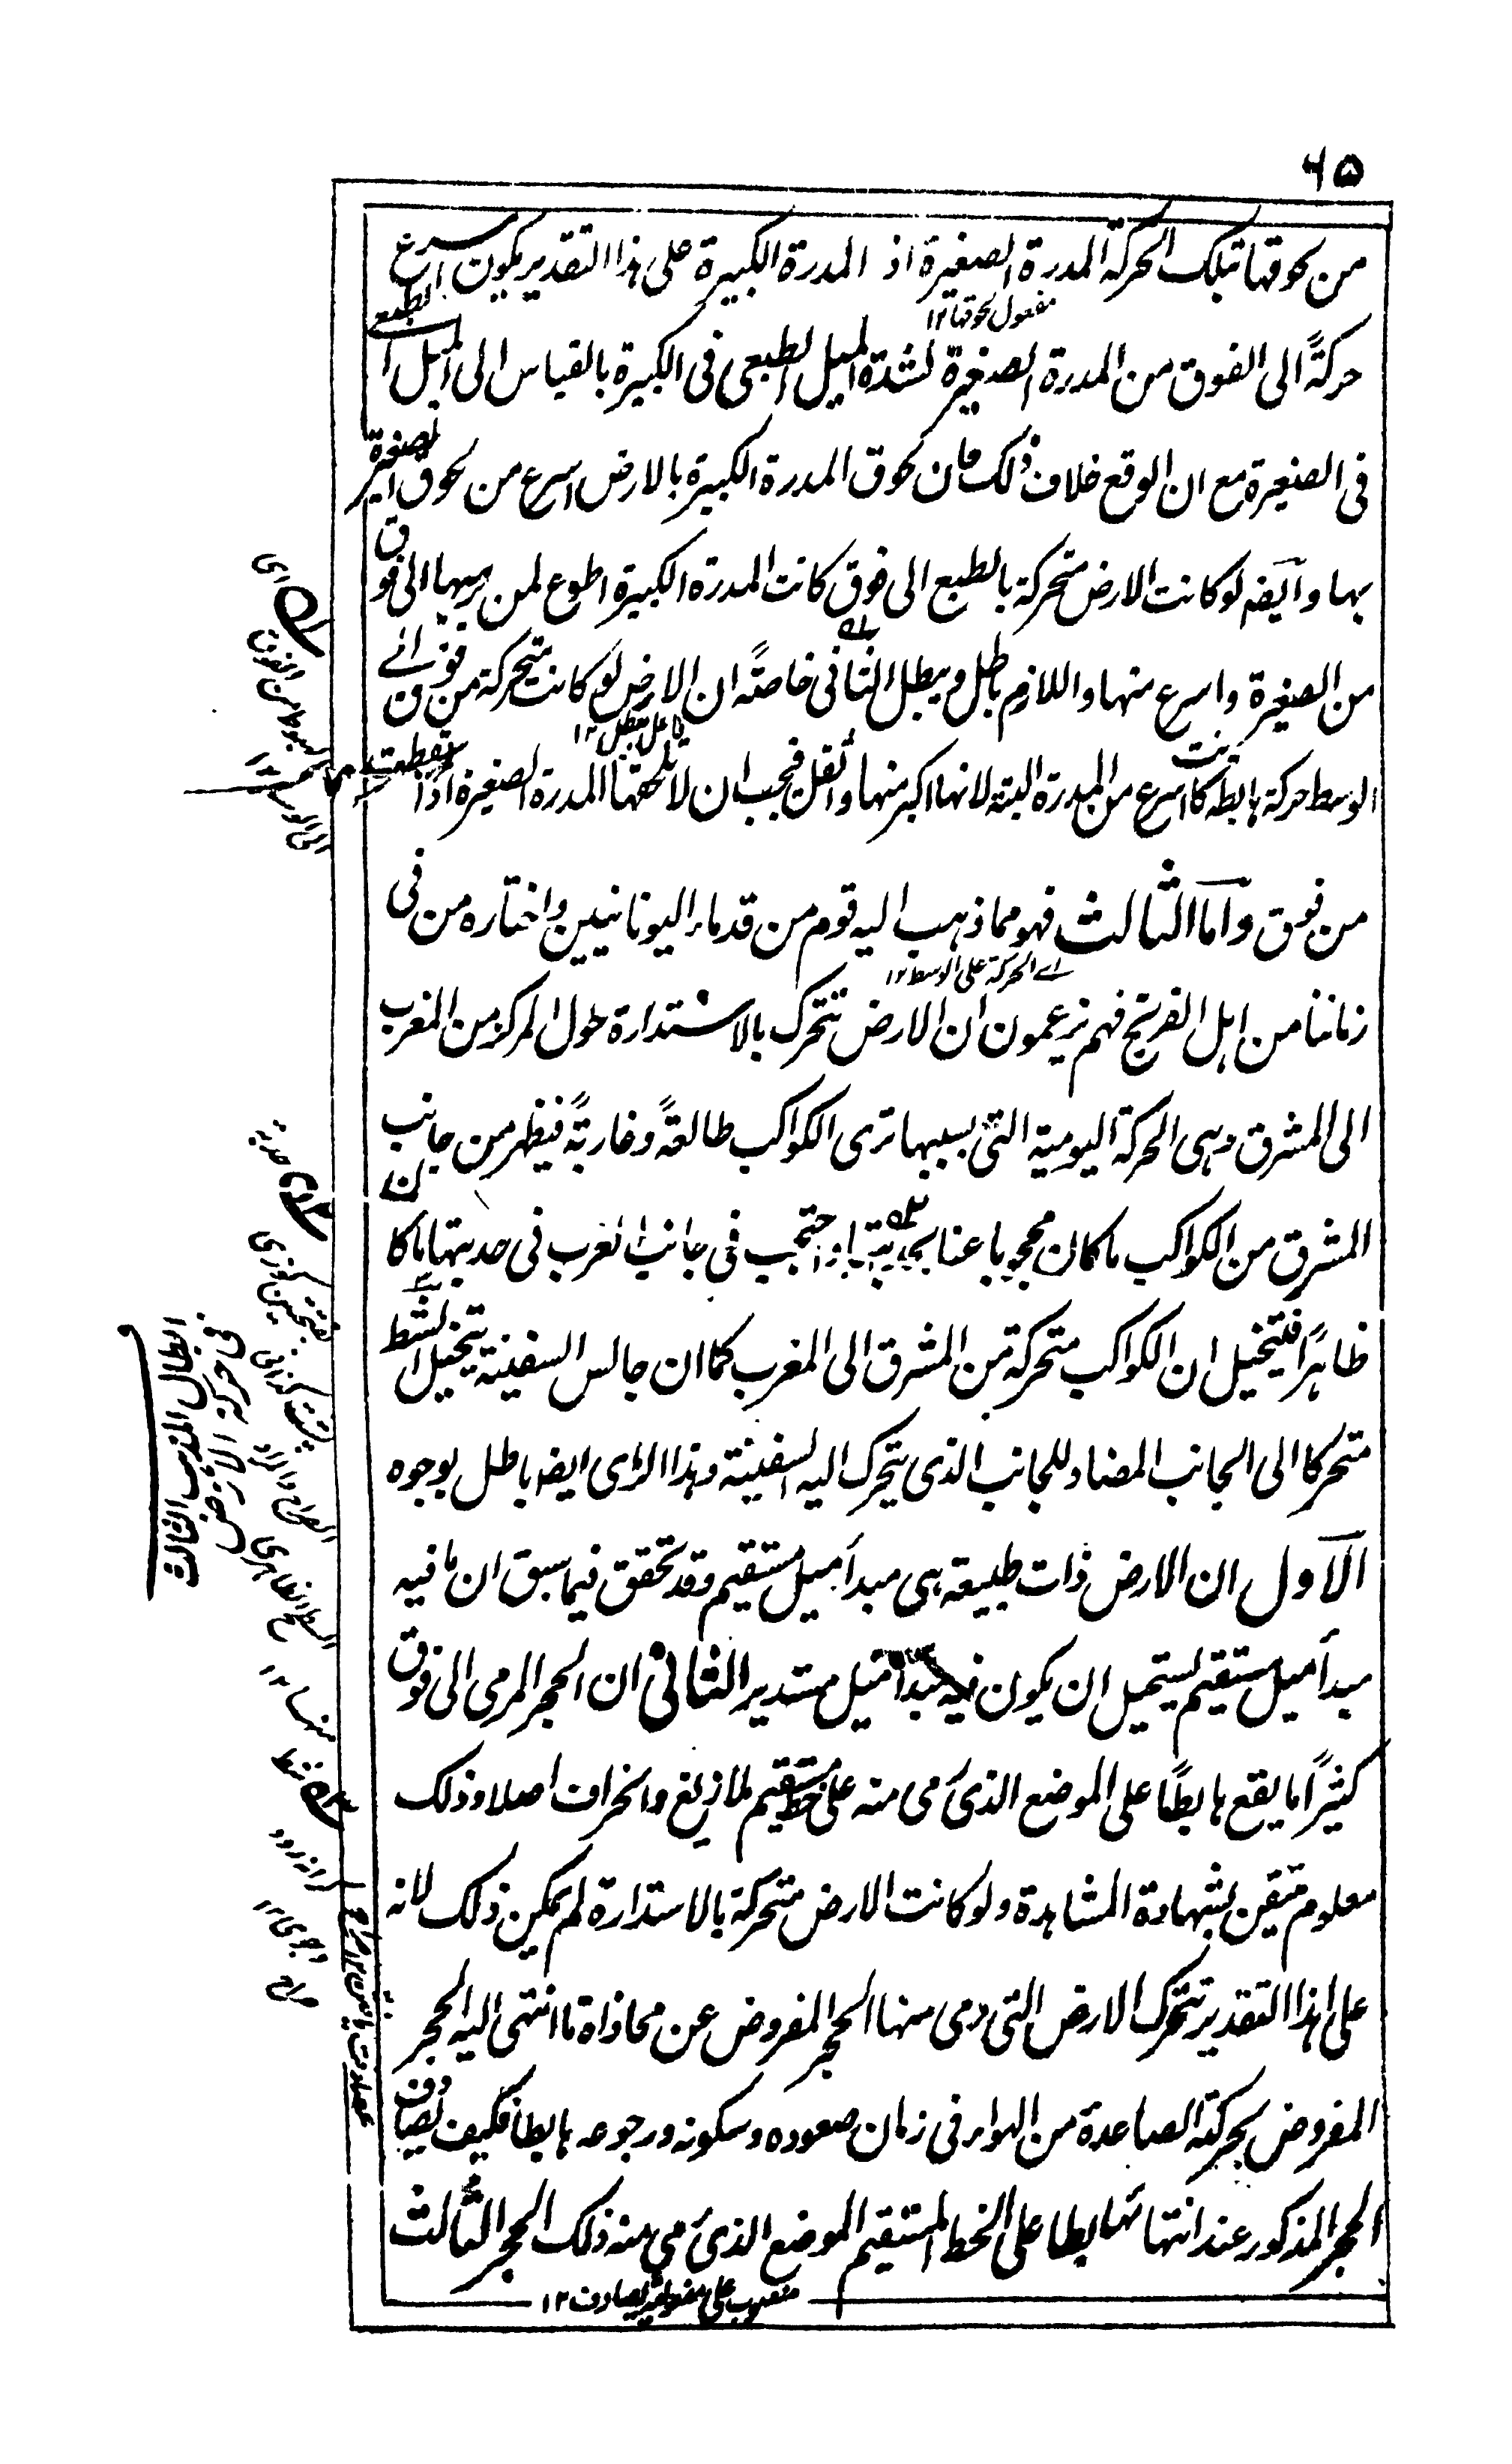 ٦٥
من لحوقها بتلك الحركة المدرة الصغيرة اذ المدرة الكبيرة على هذا التقدير يكون اسرع
مفعول لحوقها ١٢
حركةً الى الفوق من المدرة الصغيرة لشدة الميل الطبعى فى الكبيرة بالقياس الى الميل الطبعى
فى الصغيرة مع ان الوقع خلاف ذلك فان لحوق المدرة الكبيرة بالارض اسرع من لحوق الصغيرة
بها وآيضا لو كانت الارض متحركة بالطبع الى فوق كانت المدرة الكبيرة اطوع لمن يرميها الى فوق
من الصغيرة واسرع منها واللازم باطل ويبطل الثانى خاصةً ان الارض لو كانت متحركة من فوق الے
فاعل يبطل ١٢
الوسط حركة هابطة كانت اسرع من المدرة البتة لانها اكبر منها واثقل فيجب ان لا تلحقها المدرة الصغيرة اذا سقطت
من فوق وآما الثالث فهو مما ذهب اليه قوم من قدماء اليونانيين واختاره من فى
اے الحركة على الوسط ١٢
زماننا من اهل الفرنج فهم يزعمون ان الارض تتحرك بالاستدارة حول المركز من المغرب
الى المشرق وهى الحركة اليومية التى بسببها ترى الكواكب طالعةً وغاربةً فيظهر من جانب
المشرق من الكواكب ما كان محجوبا عنا بحدبتها واحتجب فى جانب الغرب فى حدبتها ما كان
ظاهرًا فيتخيل ان الكواكب متحركة من المشرق الى المغرب كما ان جالس السفينة يتخيل الشط
متحركا الى الجانب المضاد للجانب الذى يتحرك اليه السفينة وهذا الرأى ايضا باطل بوجوه
الآول ان الارض ذات طبيعة هى مبدأ ميل مستقيم وقد تحقق فيما سبق ان ما فيه
مبدأ ميل مستقيم يستحيل ان يكون فيه مبدأ ميل مستدير الثانى ان الحجر المرمى الى فوق
كثيرًا ما يقع هابطًا على الموضع الذى رمى منه على خط مستقيم بلا زيغ وانحراف اصلا وذلك
معلوم متيقن بشهادة المشاهدة ولو كانت الارض متحركة بالاستدارة لم يمكن ذلك لانه
على هذا التقدير تتحرك الارض التى رمى منها الحجر المفروض عن محاذاة ما انتهى اليه الحجر
المفروض بحركته الصاعدة من الهواء فى زمان صعوده وسكونه ورجوعه هابطا فكيف يصادف
الحجر المذكور عند انتهائه هابطا على الخط المستقيم الموضع الذى رمى منه ذلك الحجر الثالث
منصوب على مفعولية يصادف ١٢
ابطال المذهب الثالث
فى حركة الارض